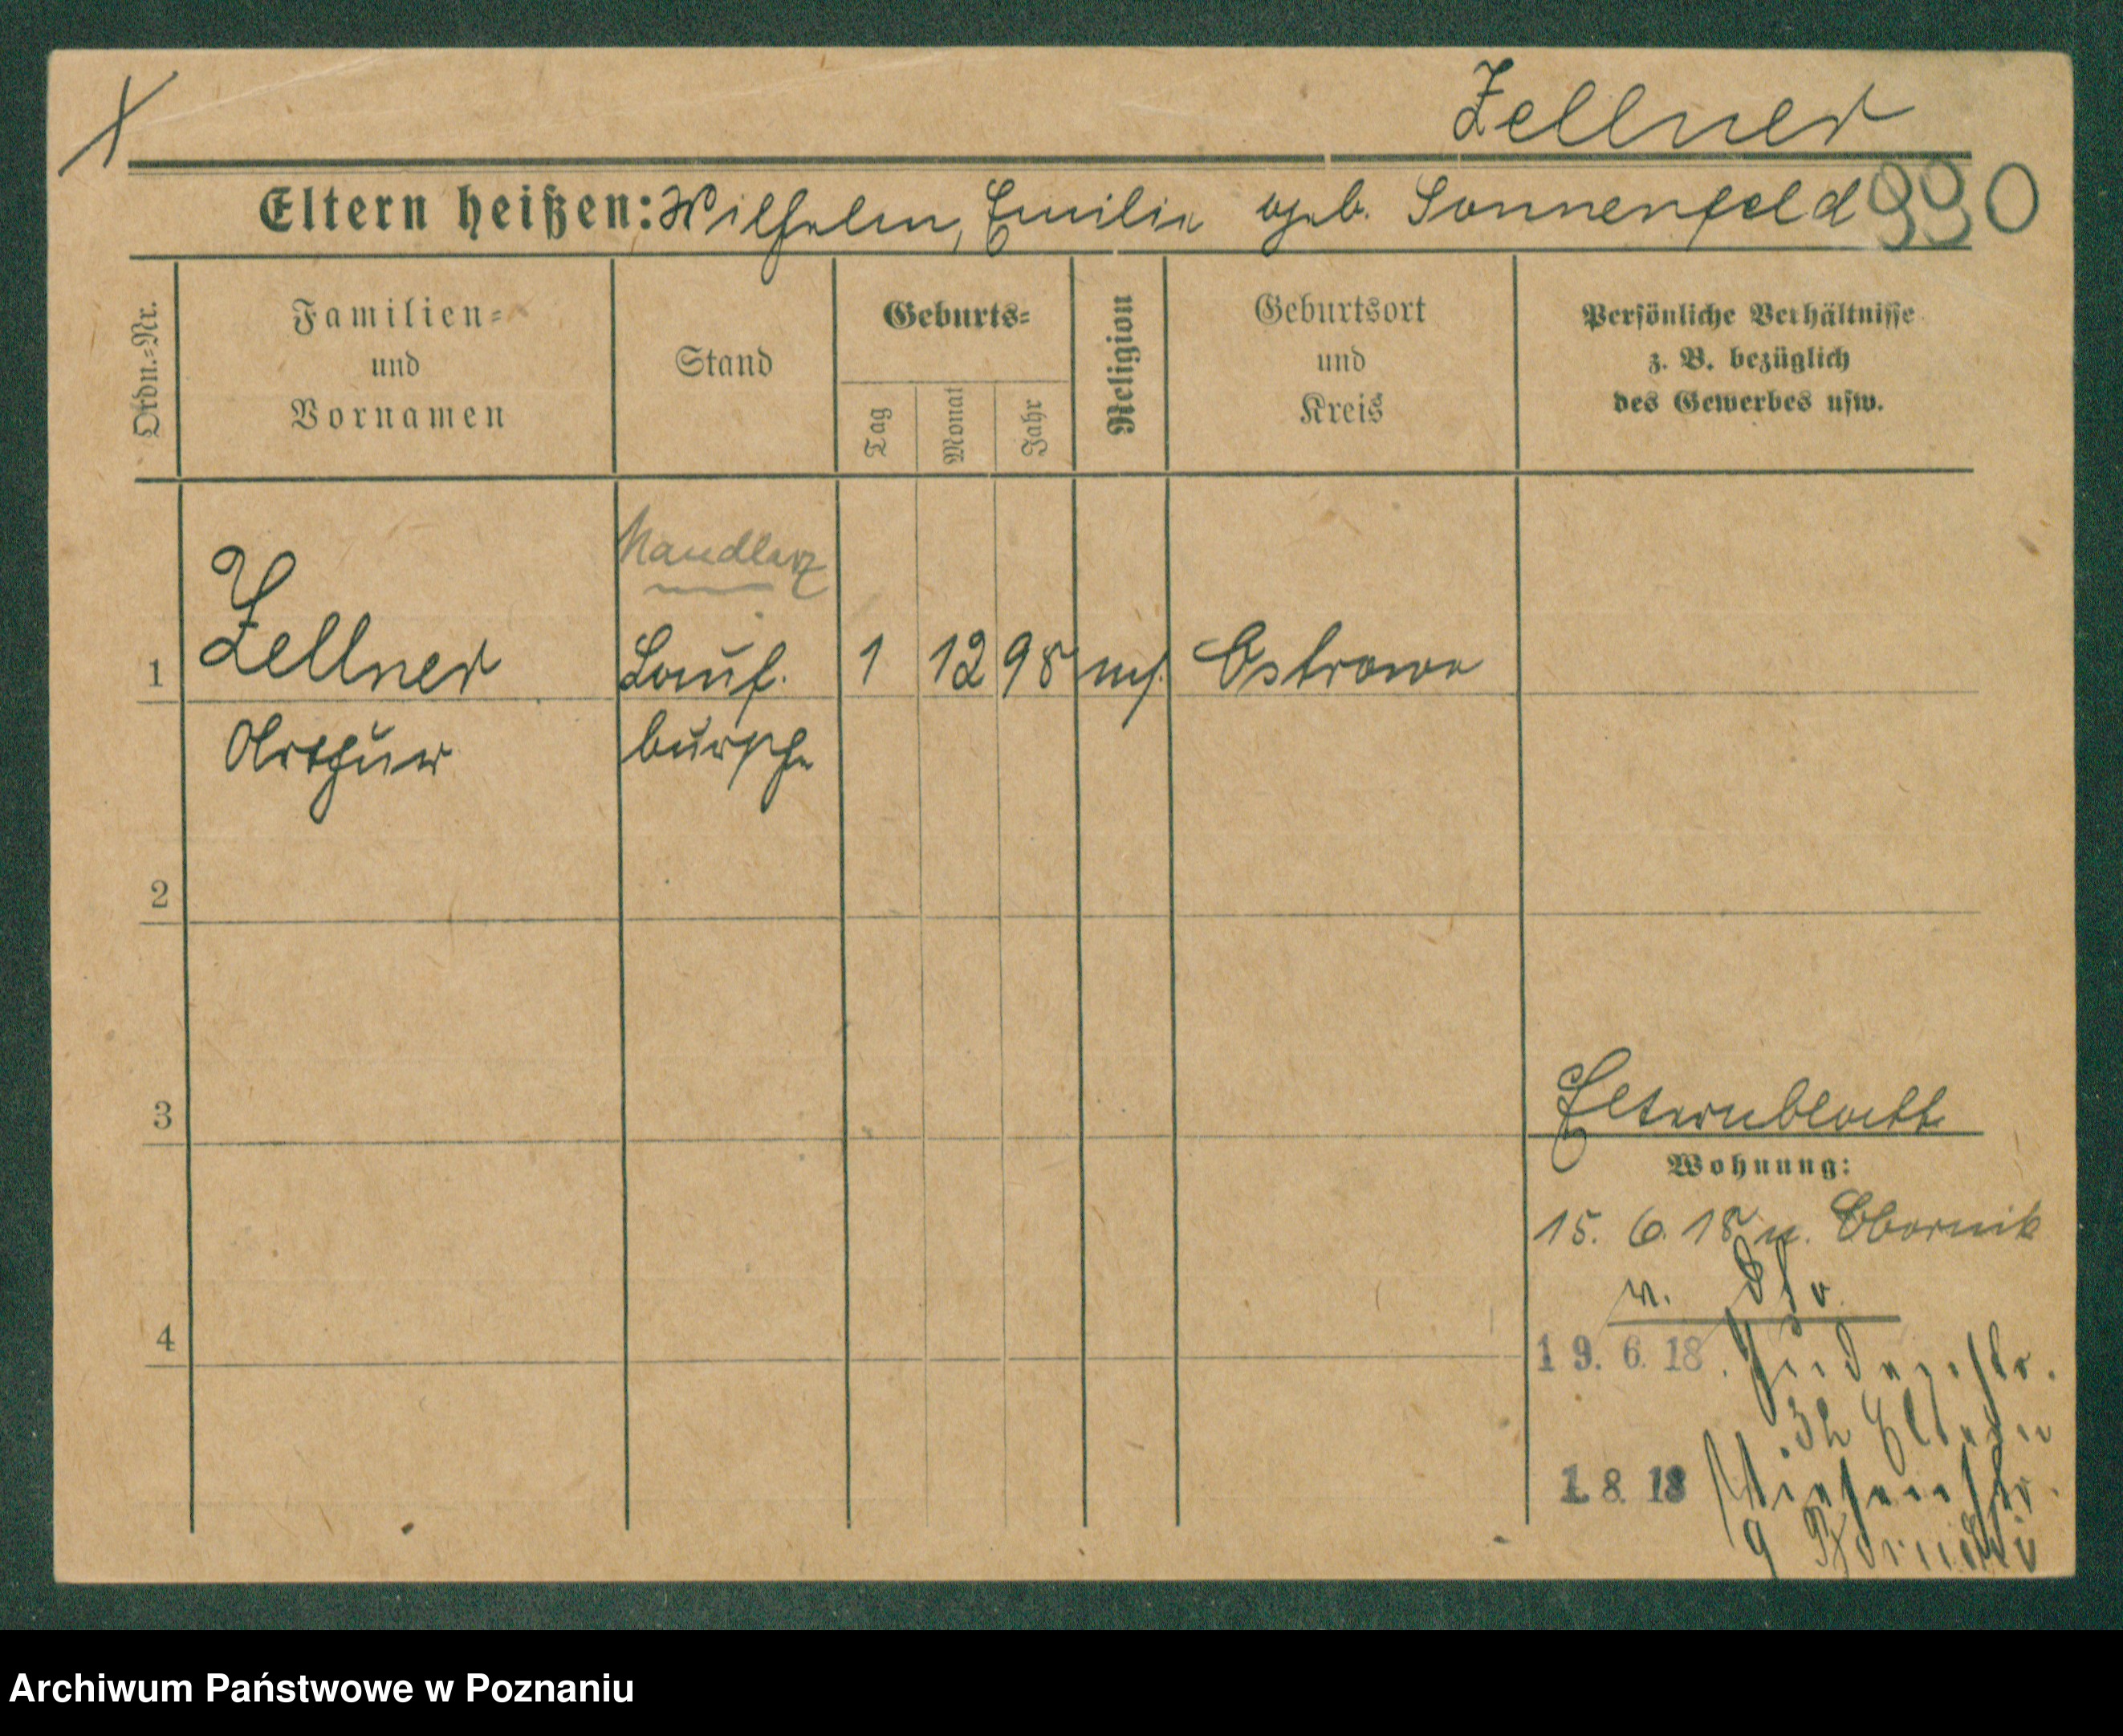 Zellner
Eltern heißen: Wilhelm, Emilie geb. Sonnenfeld 990
Ordn.=Nr.
Familien=
und
Vornamen
Stand
Geburts=
Tag
Monat
Jahr
Religion
Geburtsort
und
Kreis
Persönliche Verhältnisse
z. B. bezüglich
des Gewerbes usw.
Handlarz
1 Zellner Lauf. 1 12 98 mos. Ostrowo
Arthur bursche
2
3
Elternblatt
Wohnung:
15. 6. 18 n. Obornik
4
19. 6. 18. Judenstr.
32 Eltern
1. 8. 18
9
Archiwum Państwowe w Poznaniu